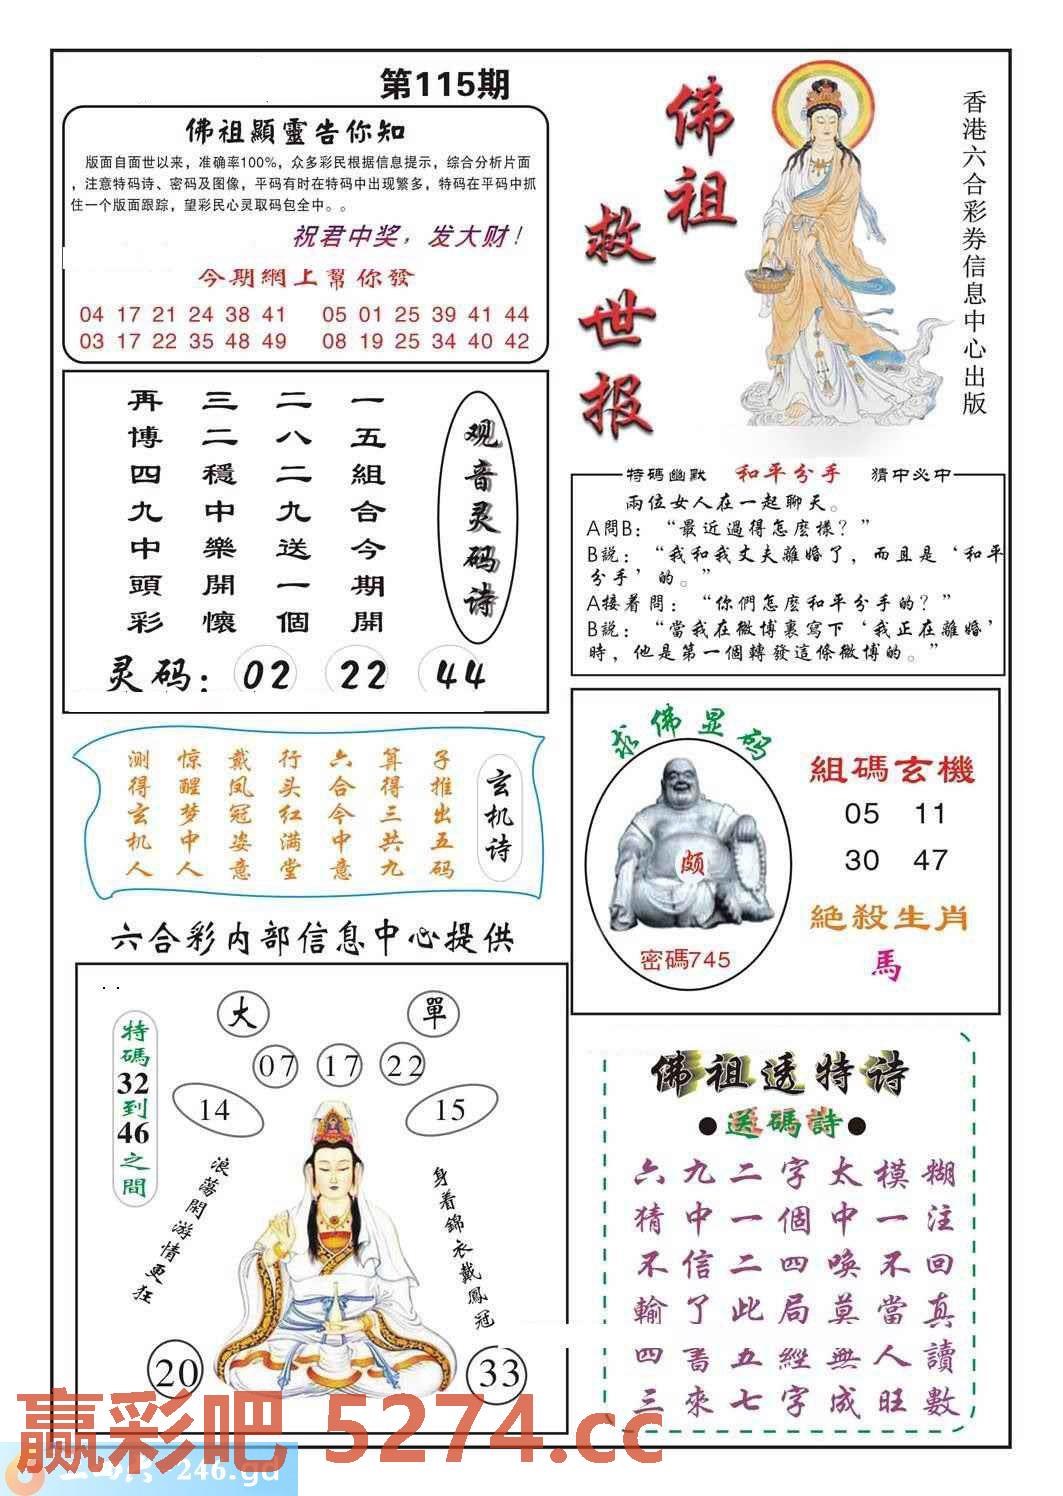 第115期
佛祖顯靈告你知
版面自面世以来，准确率100%，众多彩民根据信息提示，综合分析片面
，注意特码诗、密码及图像，平码有时在特码中出现繁多，特码在平码中抓
住一个版面跟踪，望彩民心灵取码包全中。。
祝君中奖，发大财！
今期網上幫你發
04 17 21 24 38 41 05 01 25 39 41 44
03 17 22 35 48 49 08 19 25 34 40 42
佛祖
救世报
香港六合彩券信息中心出版
观音灵码诗
一五組合今期開
二八二九送一個
三二穩中樂開懷
再博四九中頭彩
灵码：02 22 44
特碼幽默 和平分手 猜中必中
兩位女人在一起聊天。
A問B：“最近過得怎麽樣？”
B説：“我和我丈夫離婚了，而且是‘和平
分手’的。”
A接着問：“你們怎麽和平分手的？”
B説：“當我在微博裏寫下‘我正在離婚’
時，他是第一個轉發這條微博的。”
玄机诗
子推出五码
算得三共九
六合今中意
行头红满堂
戴凤冠姿意
惊醒梦中人
测得玄机人
求佛显码
颇
密碼745
組碼玄機
05 11
30 47
絕殺生肖
馬
六合彩内部信息中心提供
特碼32到46之間
大
單
07 17 22
14
15
浪蕩閑游情更狂
身着錦衣戴鳳冠
20
33
佛祖透特诗
●送碼詩●
六九二字太模糊
猜中一個中一注
不信二四喚不回
輸了此局莫當真
四書五經無人讀
三來七字成旺數
赢彩吧 5274.cc
246.gd